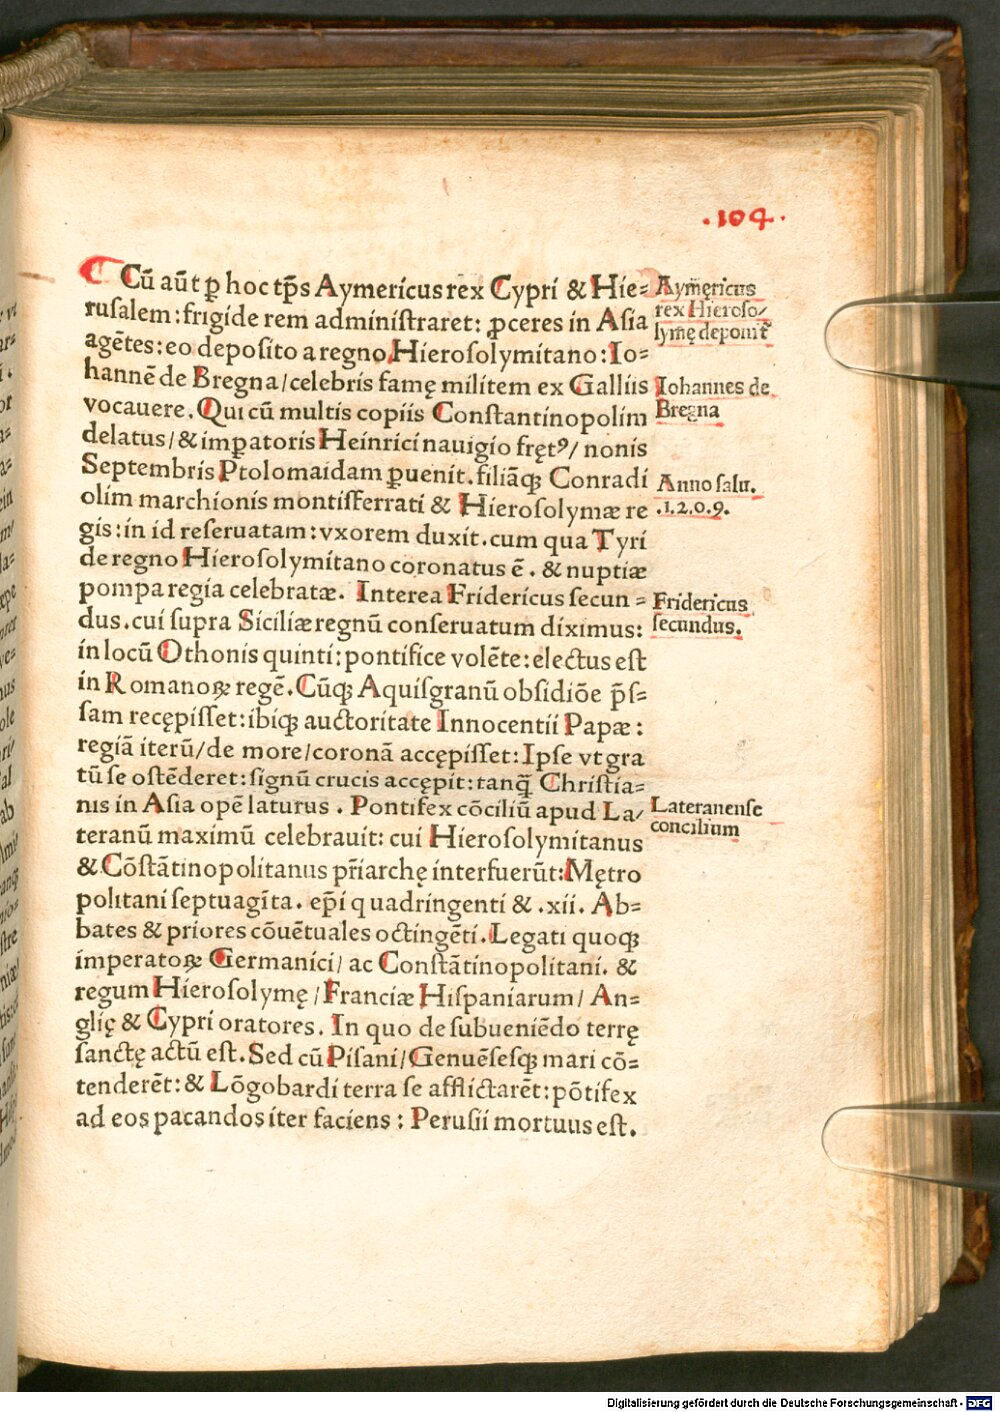 .104.
Cū aūt ꝑ hoc tp̄s Aymericus rex Cypri & Hie=
ruſalem: frigide rem adminiſtraret: ꝓceres in Aſia
agētes: eo depoſito a regno Hieroſolymitano: Io=
hannē de Bregna/celebris famę militem ex Galliis
vocauere. Qui cū multis copiis Conſtantinopolim
delatus/& imꝑatoris Heinrici nauigio fręt⁹/ nonis
Septembris Ptolomaidam ꝑuenit. filiāqꝫ Conradi
olim marchionis montiſferrati & Hieroſolymæ re
gis: in id reſeruatam: vxorem duxit. cum qua Tyri
de regno Hieroſolymitano coronatus ē. & nuptiæ
pompa regia celebratæ. Interea Fridericus ſecun=
dus. cui ſupra Siciliæ regnū conſeruatum diximus:
in locū Othonis quinti: pontifice volēte: electus eſt
in Romanoꝝ regē. Cūqꝫ Aquiſgranū obſidiōe p̄ſ=
ſam recępiſſet: ibiqꝫ auctoritate Innocentii Papæ:
regiā iterū/de more/coronā accępiſſet: Ipſe vt gra
tū ſe oſtēderet: ſignū crucis accępit: tanq̄ Chriſtia=
nis in Aſia opē laturus. Pontifex cōciliū apud La/
teranū maximū celebrauit: cui Hieroſolymitanus
& Cōſtātinopolitanus pr̄iarchę interfuerūt: Mętro
politani ſeptuagīta. ep̄i quadringenti & .xii. Ab=
bates & priores cōuētuales octingēti. Legati quoqꝫ
imperatoꝝ Germanici/ ac Conſtātinopolitani. &
regum Hieroſolymę/Franciæ Hiſpaniarum/ An=
glię & Cypri oratores. In quo de ſubueniēdo terrę
ſanctę actū eſt. Sed cū Piſani/Genuēſeſqꝫ mari cō=
tenderēt: & Lōgobardi terra ſe afflictarēt: pōtifex
ad eos pacandos iter faciens: Peruſii mortuus eſt.
Aym̄ęricus
rex Hieroſo/
lymę deponit̄
Iohannes de
Bregna
Anno ſalu.
.1.2.0.9.
Fridericus
ſecundus.
Lateranenſe
concilium
Digitalisierung gefördert durch die Deutsche Forschungsgemeinschaft - DFG